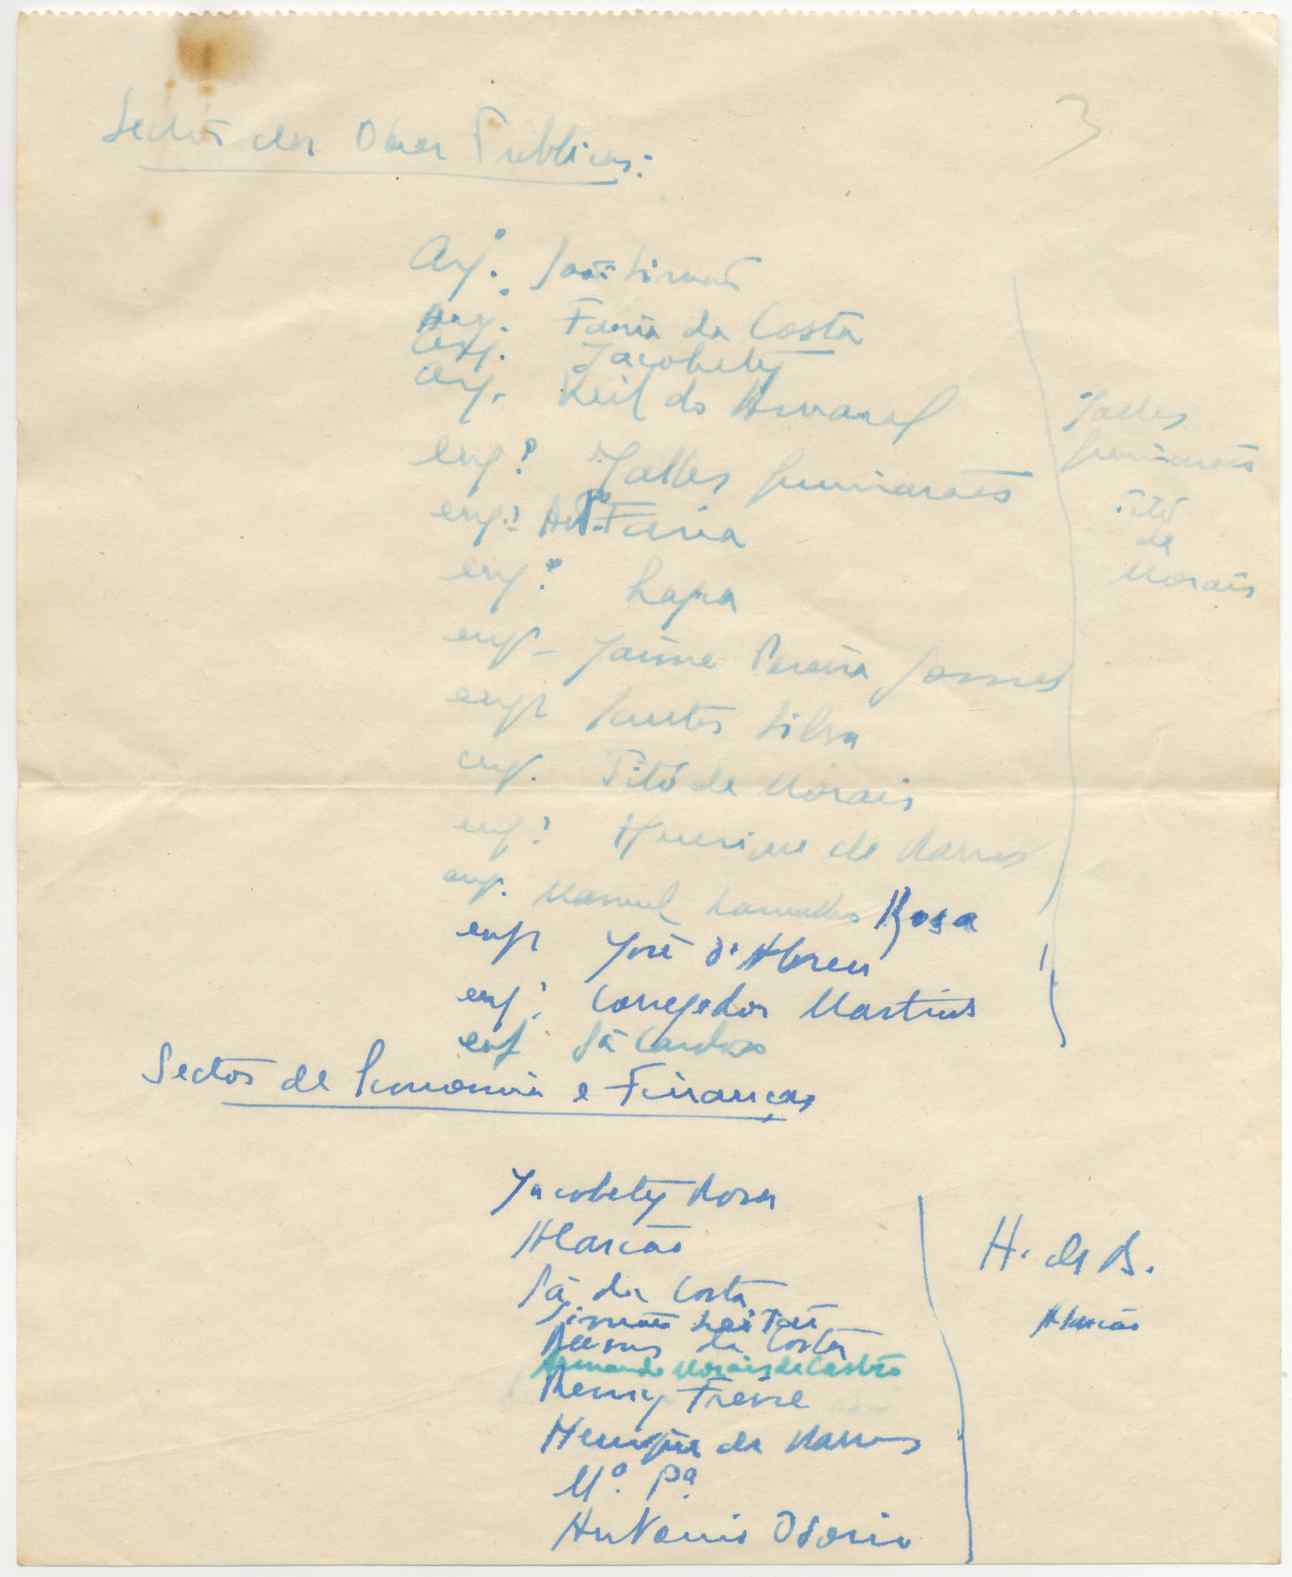 3
Sector das Obras Publicas:
Arq.º João Simões
Arq. Faria da Costa
Arq. Jacobety
Arq. Keil do Amaral
eng.º Salles Guimarães
eng.º Antº Faria
eng.º Lapa
engº Jaime Pereira Gomes
engº Santos Silva
eng. Tito de Morais
eng.º Henrique de Barros
eng. Manuel Lamedo Rosa
engº José d'Abreu
eng.º Corregedor Martins
eng. Sá Cardoso
Salles
Guimarães
Tito
de
Morais
Sector de Economia e Finanças
Jacobety Rosa
Alarcão
Sá da Costa
Simões Leitão
Ramos da Costa
Armando Morais de Castro
Remy Freire
Henrique de Barros
Mº. Pª.
Antonio Osorio
H. de B.
Alarcão